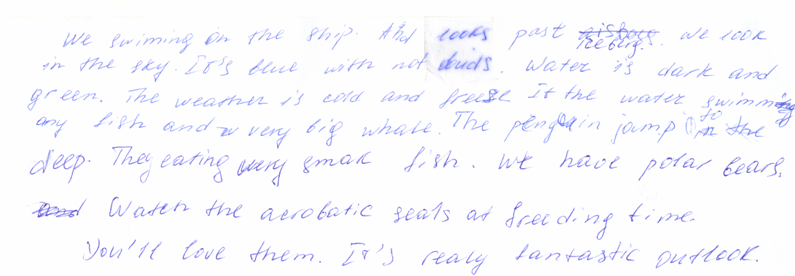 We swiming on the ship. And looks past Icebergs. We look
in the sky. It's blue with not clouds. Water is dark and
green. The weather is cold and freese. It the water swimming
any fish and very big whale. The penguin jump to the
deep. They eating very smal fish. We have polar bears.
Watch the acrobatic seals at freeding time.
You'll love them. It's realy fantastic outlook.